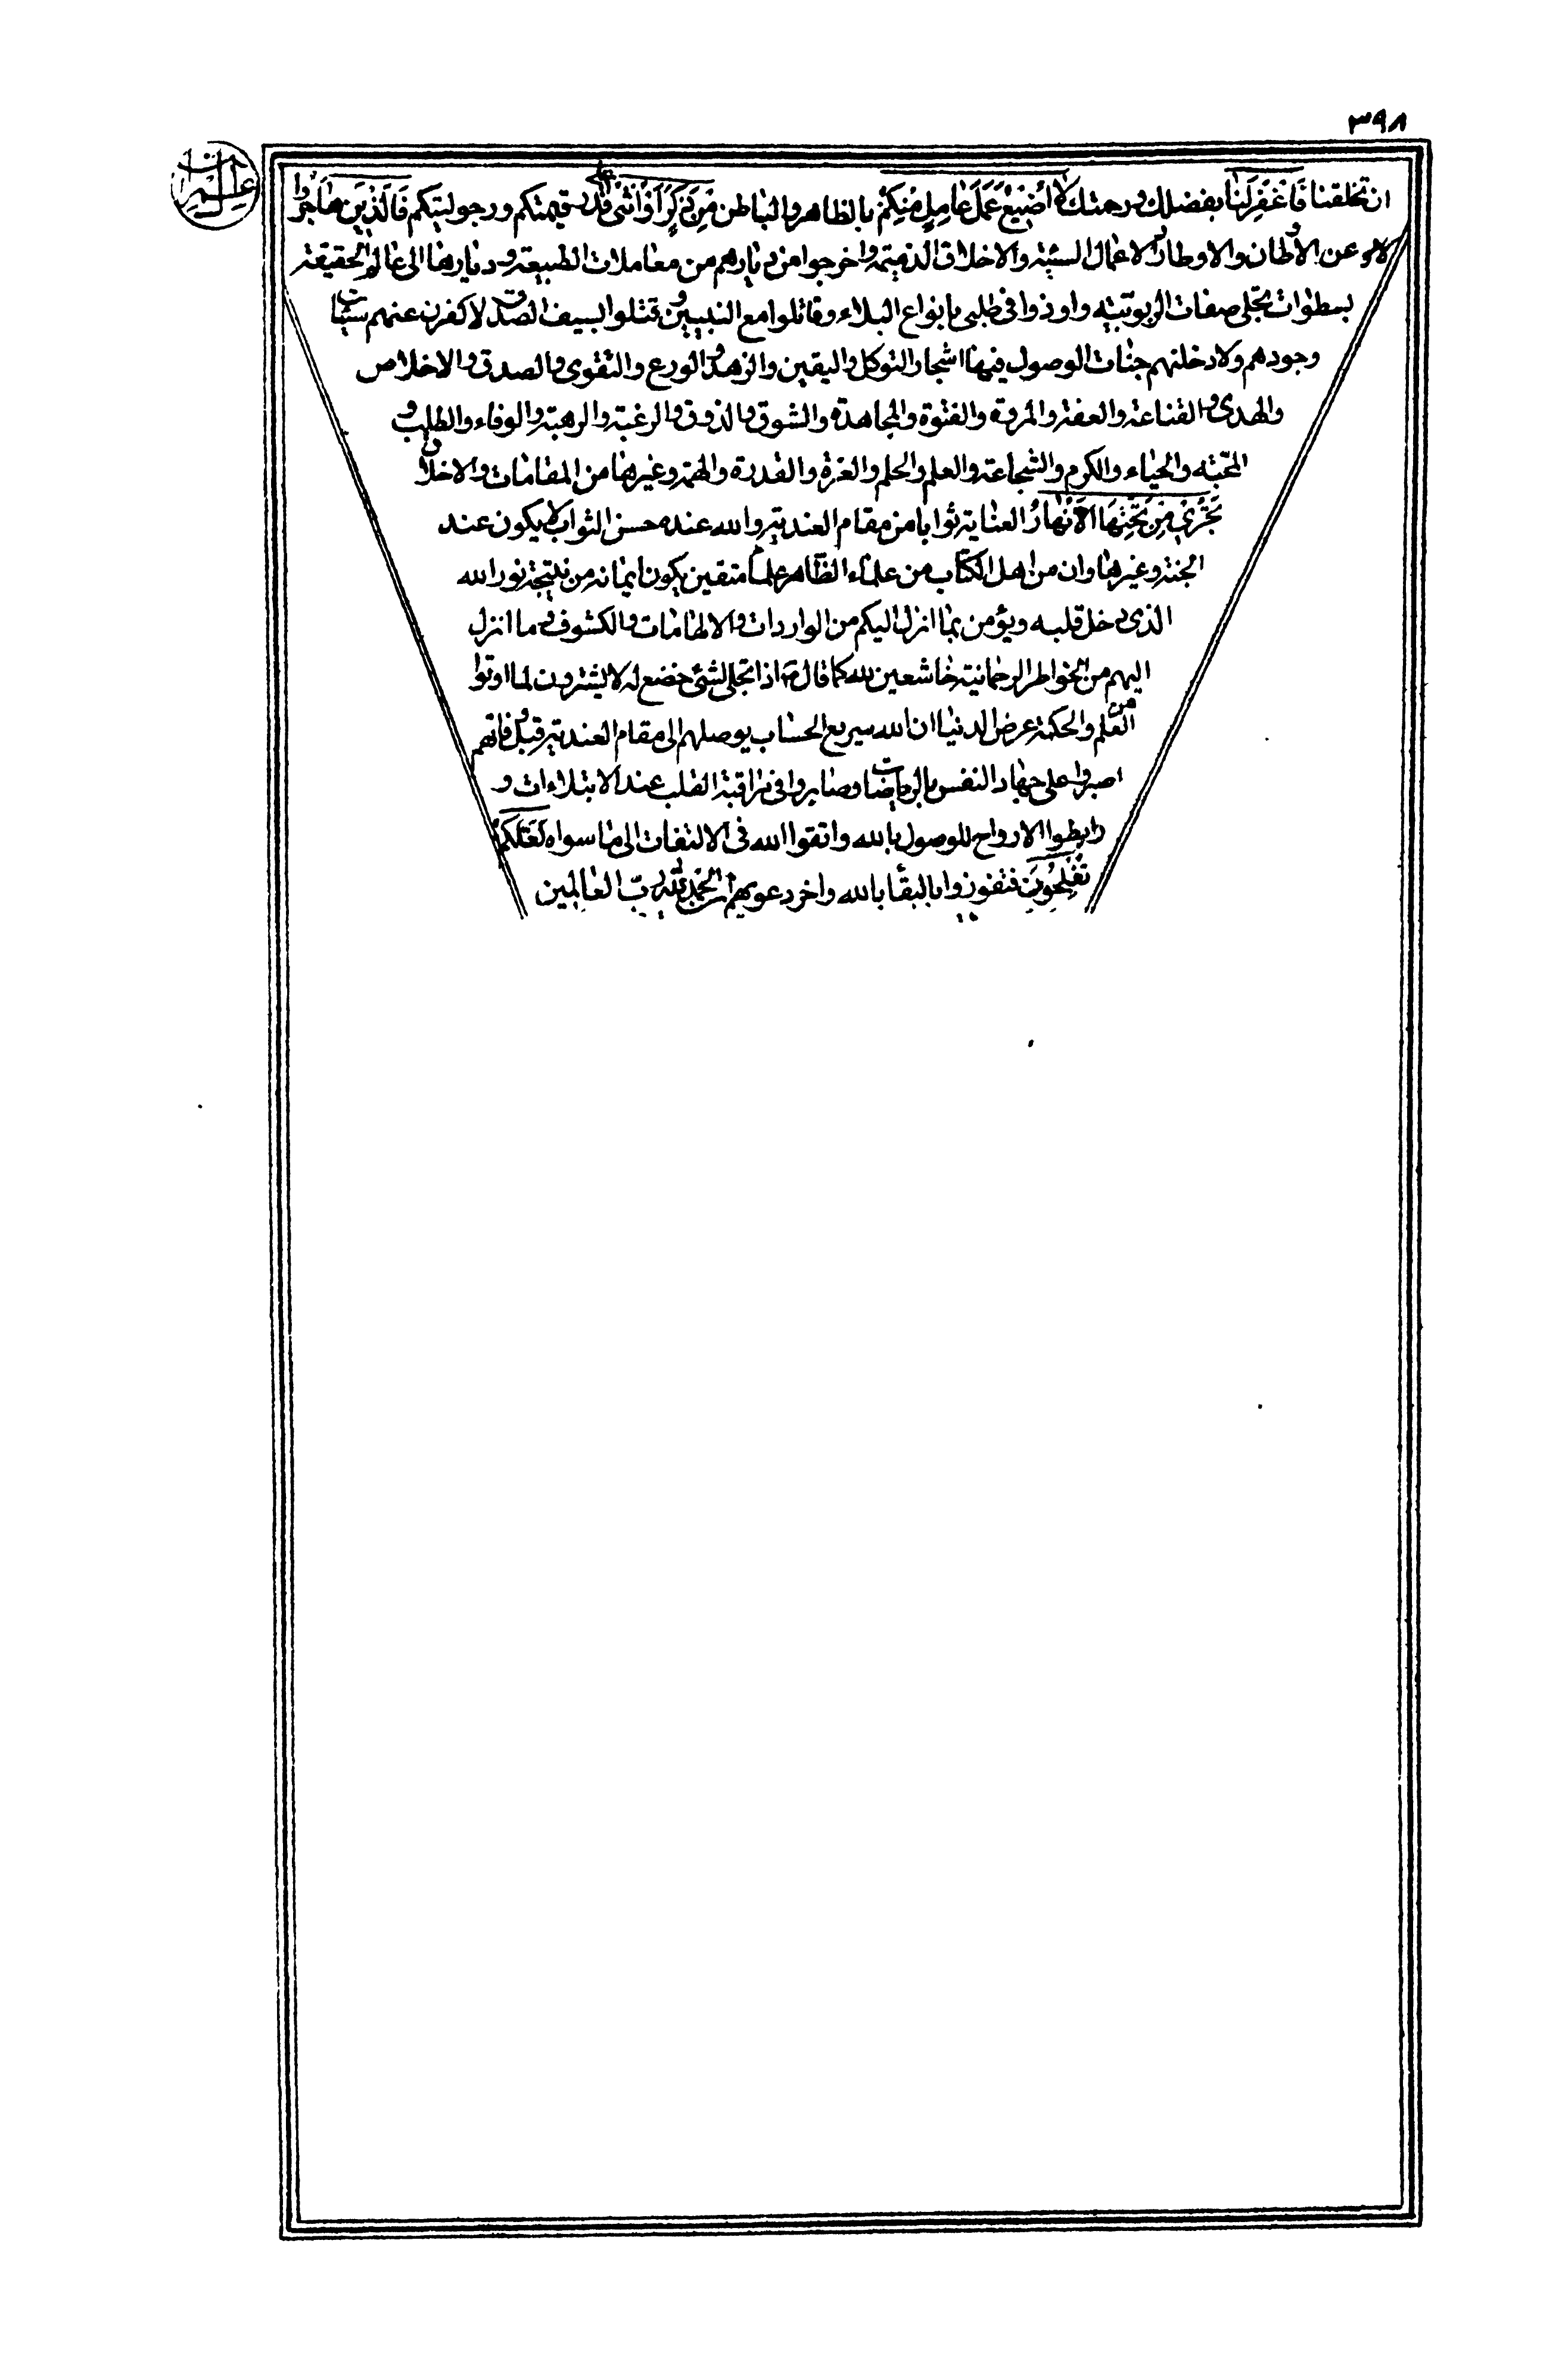 ٣٩٨
ال عمران
ان تخلقنا فَاغْفِرْ لَنَا بفضلك ورحمتك لَا أُضِيعُ عَمَلَ عَامِلٍ مِنْكُمْ بالظاهر والباطن مِنْ ذَكَرٍ أَوْ أُنْثَى قدر همتكم ورجوليتكم فَالَّذِينَ هَاجَرُوا
عن الاوطان والاوطار والاعمال السيئة والاخلاق الذميمة واخرجوا من ديارهم من معاملات الطبيعة و ديارها الى عالم الحقيقة
بسطوات تجلى صفات الربوبية واوذوا فى طلبى بانواع البلاء وقاتلوا مع النبيين وقتلوا بسيف الصدق لاكفرن عنهم سيئات
وجودهم ولادخلنهم جنات الوصول فيها اشجار التوكل واليقين والزهد والورع والتقوى والصدق والاخلاص
والهدى والقناعة والعفة والمروة والفتوة والمجاهدة والشوق والذوق والرغبة والرهبة والوفاء والطلب و
المحبة والحياء والكرم والشجاعة والعلم والحلم والعزة والقدرة والهمة وغيرها من المقامات والاخلاق
تَجْرِي مِنْ تَحْتِهَا الْأَنْهَارُ العناية ثوابا من مقام العندية والله عنده حسن الثواب لا يكون عند
الجنة وغيرها وان من اهل الكتاب من علماء الظاهر علماء متقين يكون ايمانه من نتيجة نور الله
الذى دخل قلبه ويؤمن بما انزل اليكم من الواردات والالهامات والكشوف وما انزل
اليهم من الخواطر الرحمانية خاشعين لله كما قال اذا تجلى لشئ خضع له لا يشترون لما اوتوا
من العلم والحكمة عرض الدنيا ان الله سريع الحساب يوصلهم الى مقام العندية قبل وفاتهم
اصبروا على جهاد النفس بالرياضات وصابروا فى مراقبة القلب عند الابتلاءات و
رابطوا الارواح للوصول بالله واتقوا الله فى الالتفات الى ما سواه لَعَلَّكُمْ
تُفْلِحُونَ فتفوزوا بالبقأ بالله واخر دعويهم ان الحمد لله رب العالمين